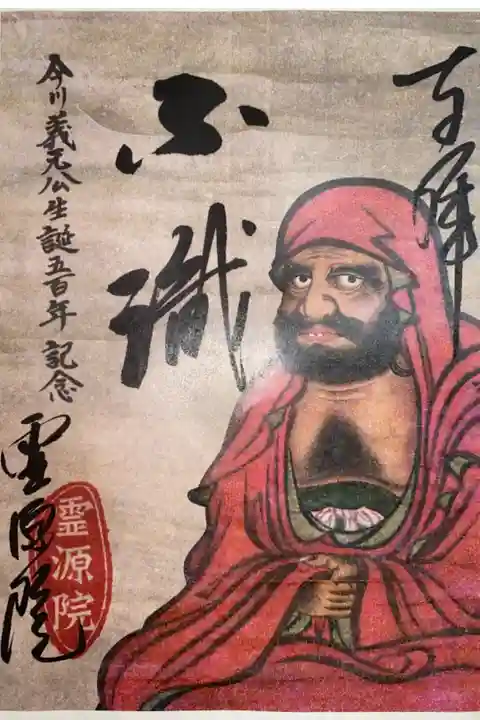 奉拝
不識
今川義元公生誕五百年 記念
霊源院
霊源院